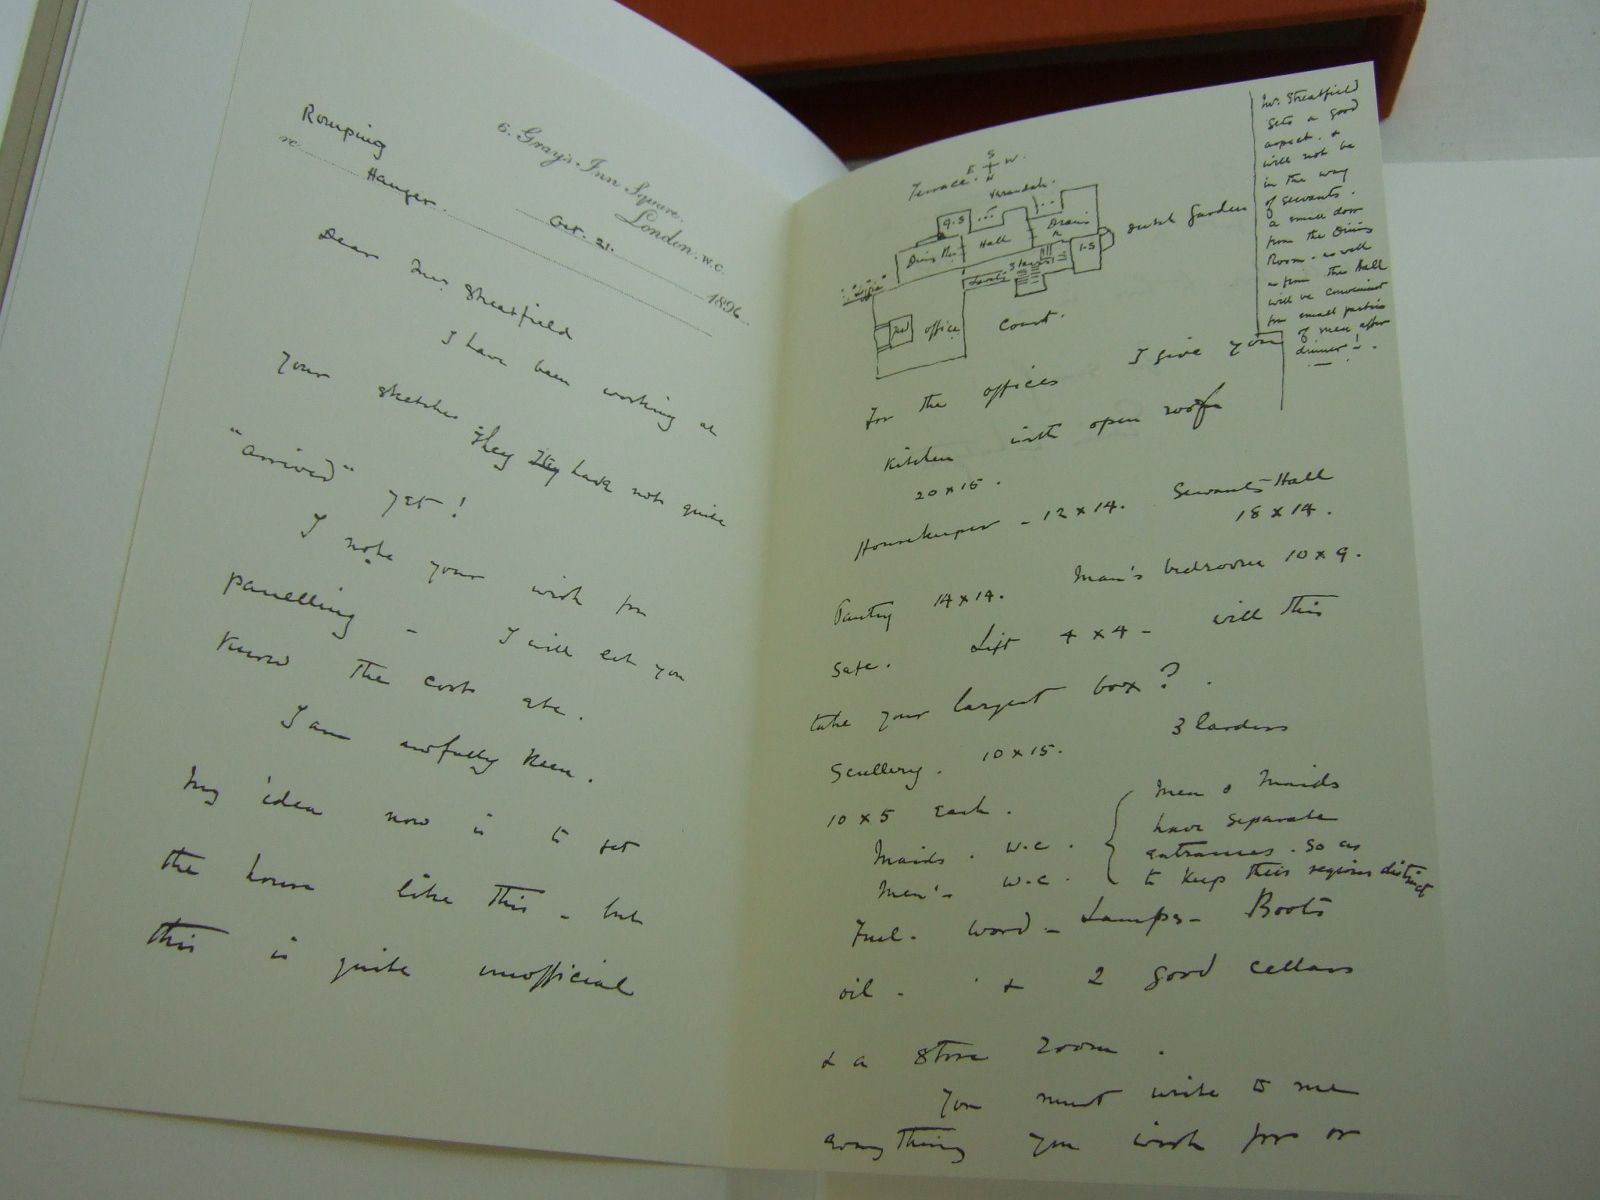 6. Gray's Inn Square,
London. W.C.
Romping
re Hanger.
Oct. 21. 1896.
Dear Mrs Streatfield
I have been working at
your sketches They They have not quite
"arrived" yet!
I note your wish for
panelling - I will let you
know the cost etc.
I am awfully keen.
My idea now is to set
the house like this - but
this is quite unofficial
S
E W.
N
Terrace.
Verandah.
G.S
Dining Rm
Hall
Drain
R
I.S
Dutch Garden
Stairs
office
Court.
Mr. Streatfield
gets a good
aspect. &
will not be
in the way
of servants.
a small door
from the Dining
Room. as well
as from the Hall
will be convenient
for small parties
of men after
dinner!
For the offices I give you
Kitchen with open roof
20 x 15.
Housekeeper - 12 x 14. Servants Hall
18 x 14.
Pantry 14 x 14. Man's bedroom 10 x 9.
Safe. Lift 4 x 4 - will this
take your largest box?
Scullery. 10 x 15. 3 larders
10 x 5 each.
Maids. W.C.
Men's W.C.
Men & Maids
have separate
entrances. So as
to keep their regions distinct
Fuel. Wood - Lamps - Boots
oil - & 2 good cellars
& a store room.
You must write to me
everything you wish for or